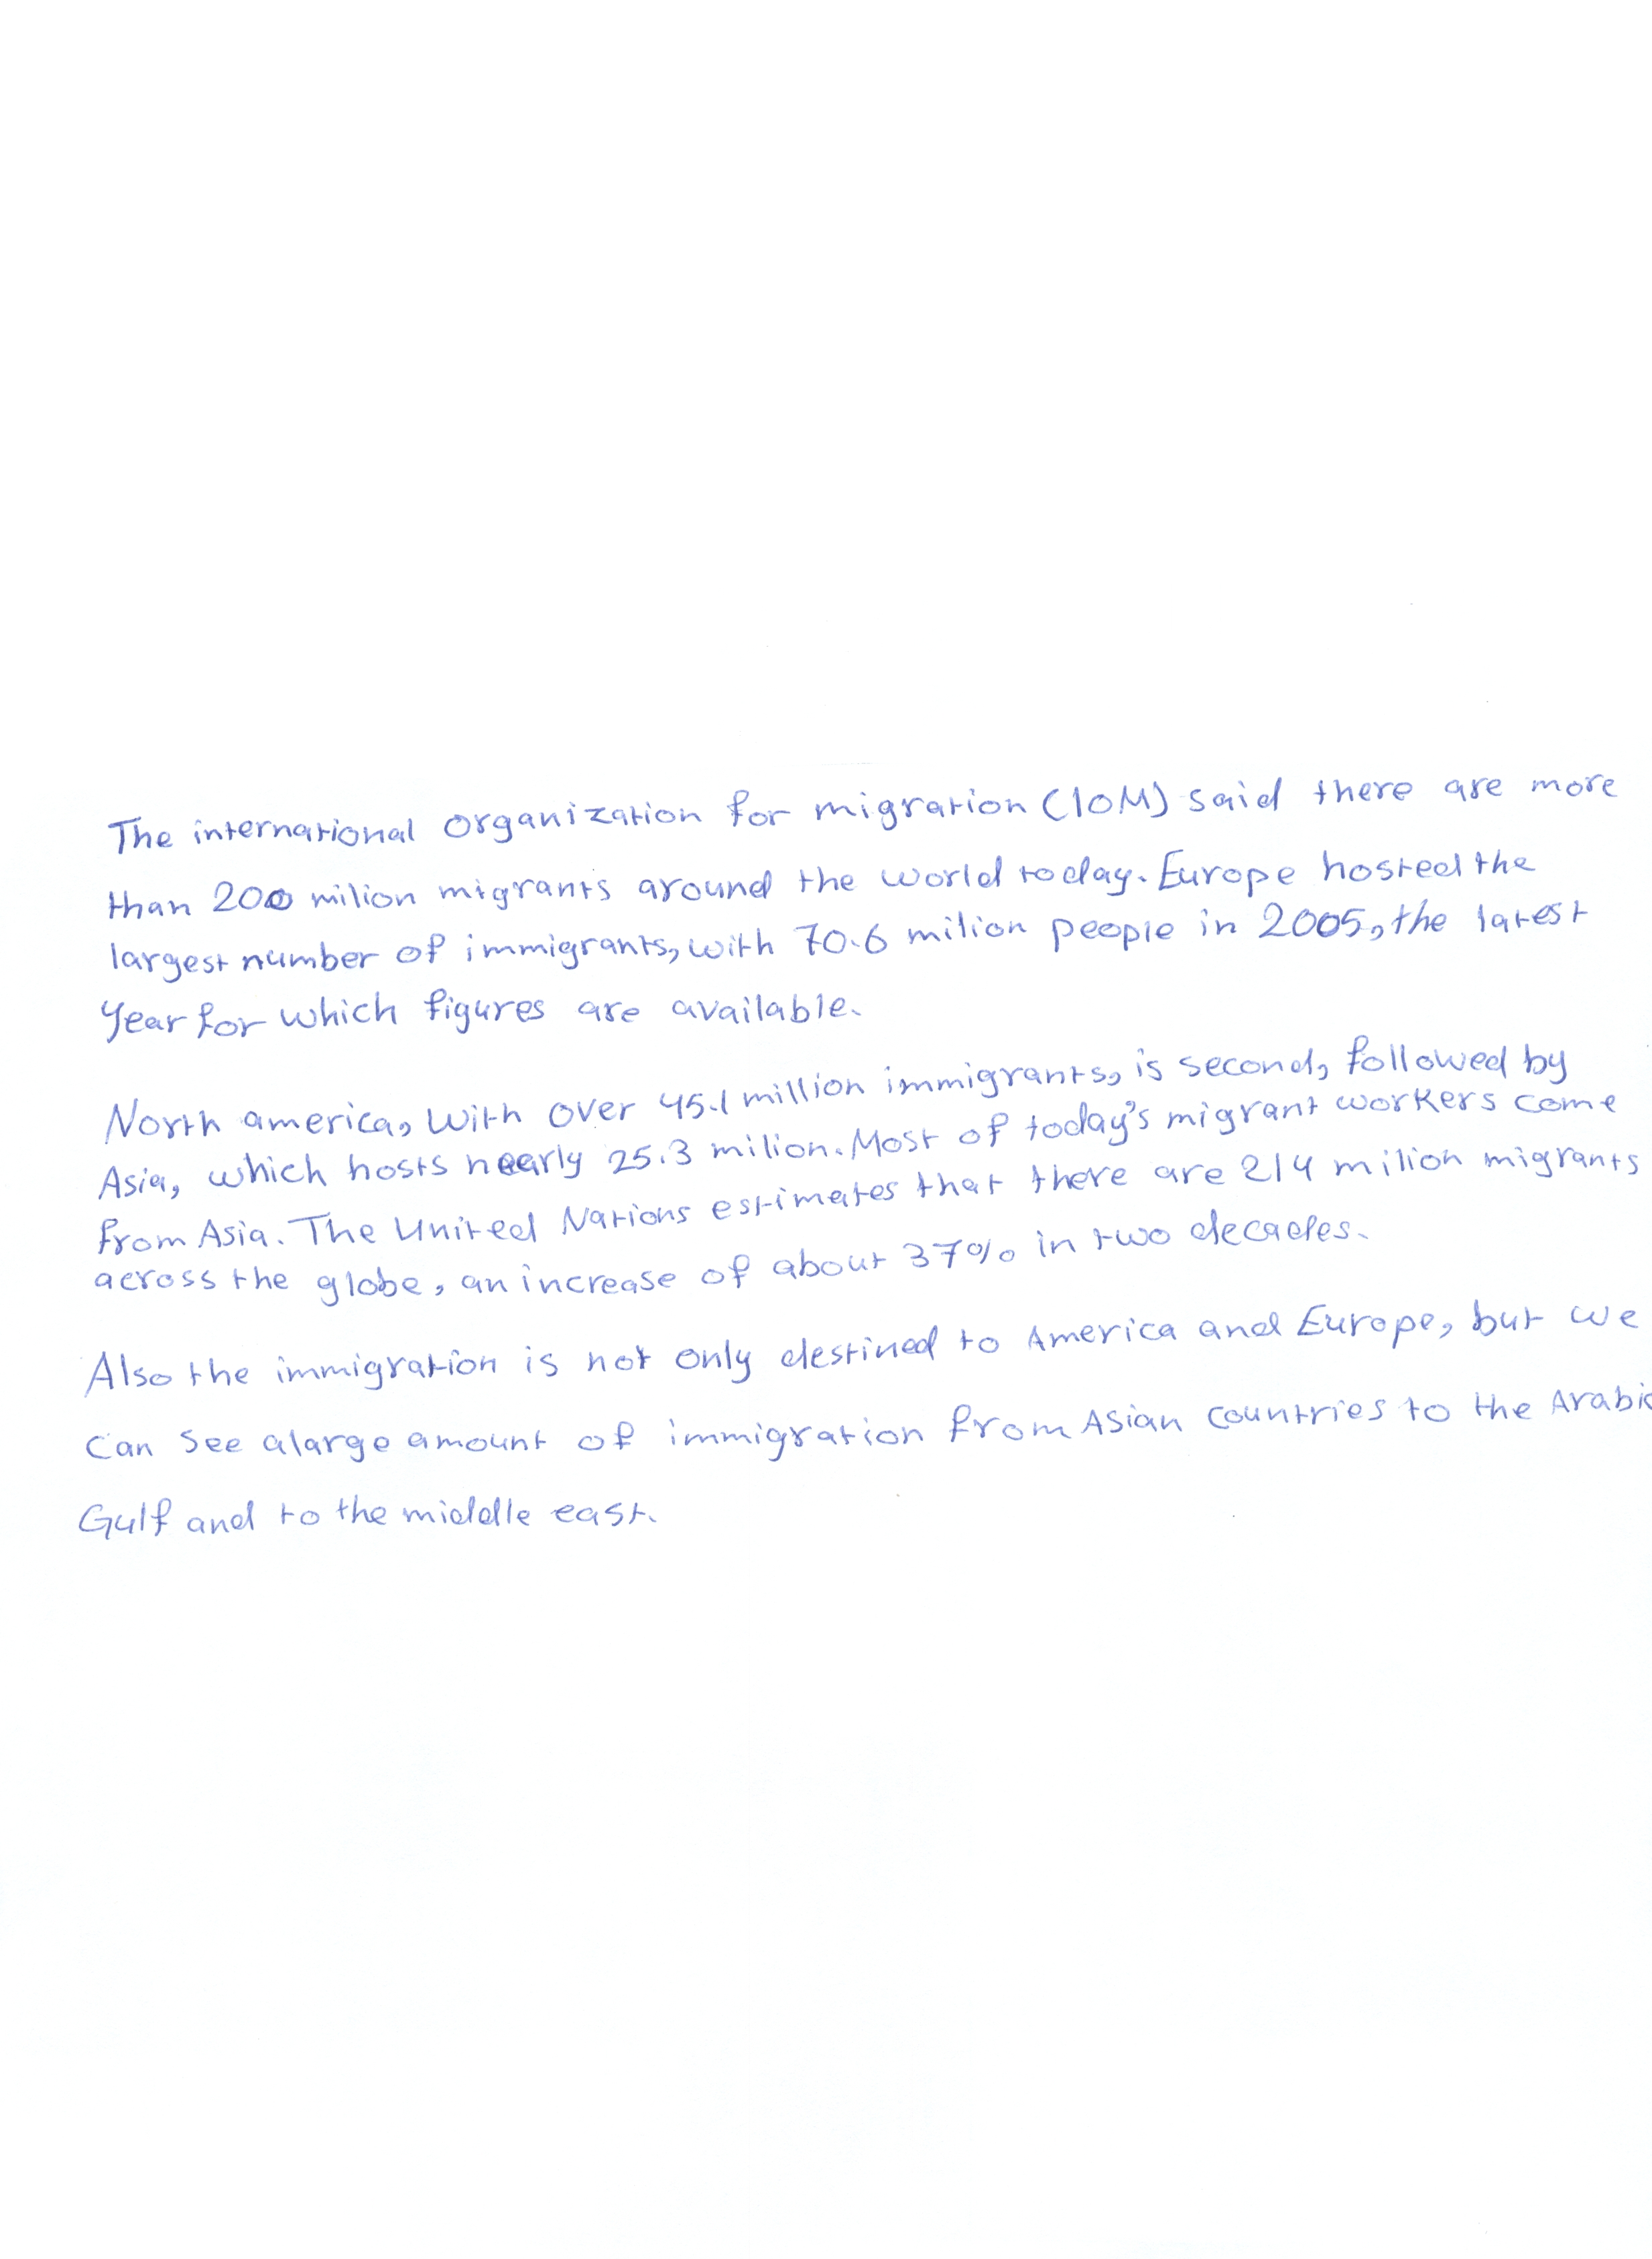 The international organization for migration (IOM) said there are more
than 200 milion migrants around the world today. Europe hosted the
largest number of immigrants, with 70.6 milion people in 2005, the latest
Year for which figures are available.
North america, with over 45.1 million immigrants, is second, followed by
Asia, which hosts nearly 25.3 milion. Most of today's migrant workers come
from Asia. The United Nations estimates that there are 214 milion migrants
across the globe, an increase of about 37% in two decades.
Also the immigration is not only destined to America and Europe, but we
can see alarge amount of immigration from Asian countries to the Arabic
Gulf and to the middle east.